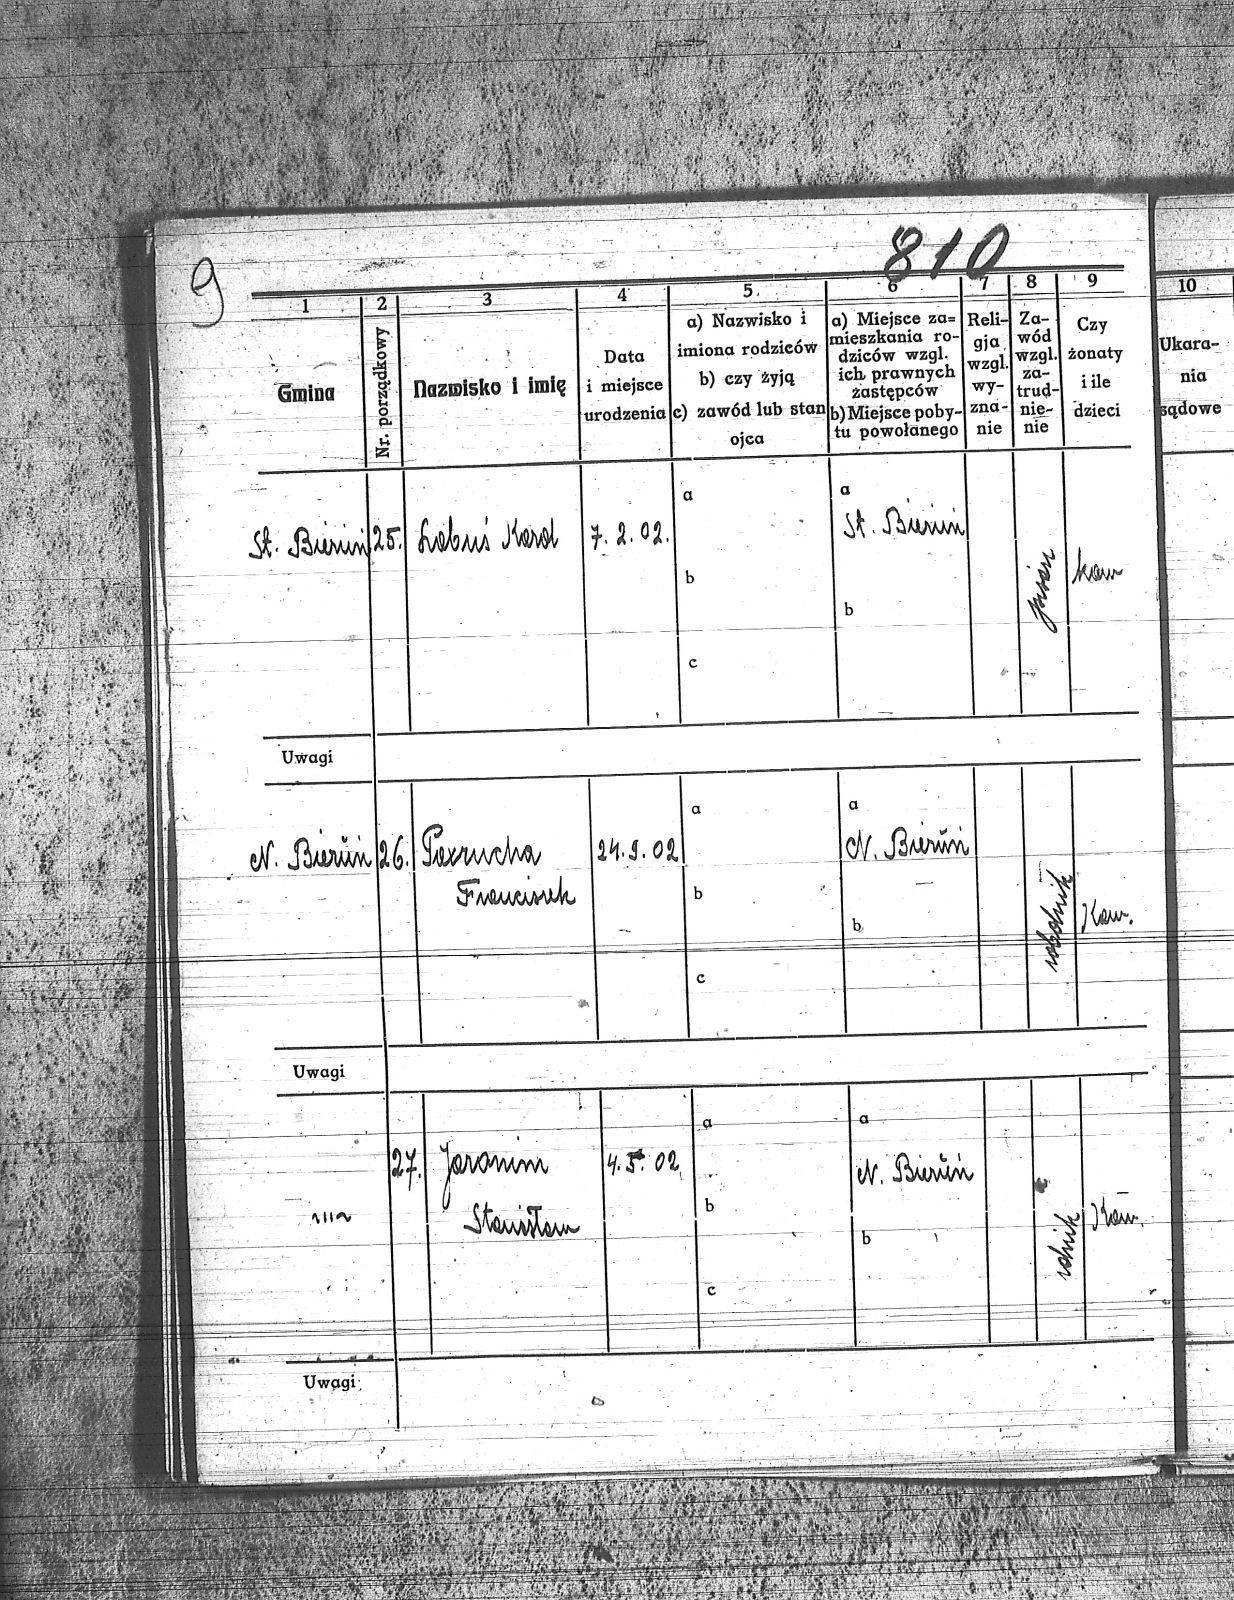 9
810
1 2 3 4 5. 6 7 8 9 10
Gmina
Nr. porządkowy
Nazwisko i imię
Data
i miejsce
urodzenia
a) Nazwisko i
imiona rodziców
b) czy żyją
c) zawód lub stan
ojca
a) Miejsce za=
mieszkania ro-
dziców wzgl.
ich prawnych
zastępców
b) Miejsce poby-
tu powołanego
Reli-
gja
wzgl.
wy-
zna-
nie
Za-
wód
wzgl.
za-
trud-
nie-
nie
Czy
żonaty
i ile
dzieci
Ukara-
nia
sądowe
a a
St. Bieruń 25. Łabuś Karol 7. 2. 02. St. Bieruń
b kaw
b
c
Uwagi
a a
N. Bieruń 26. 24. 9. 02 N. Bieruń
Franciszek
b robotnik Kaw.
b
c
Uwagi
a a
27. Jaromin 4. 5. 02 N. Bieruń
Stanisław
b rolnik Kaw.
b
c
Uwagi